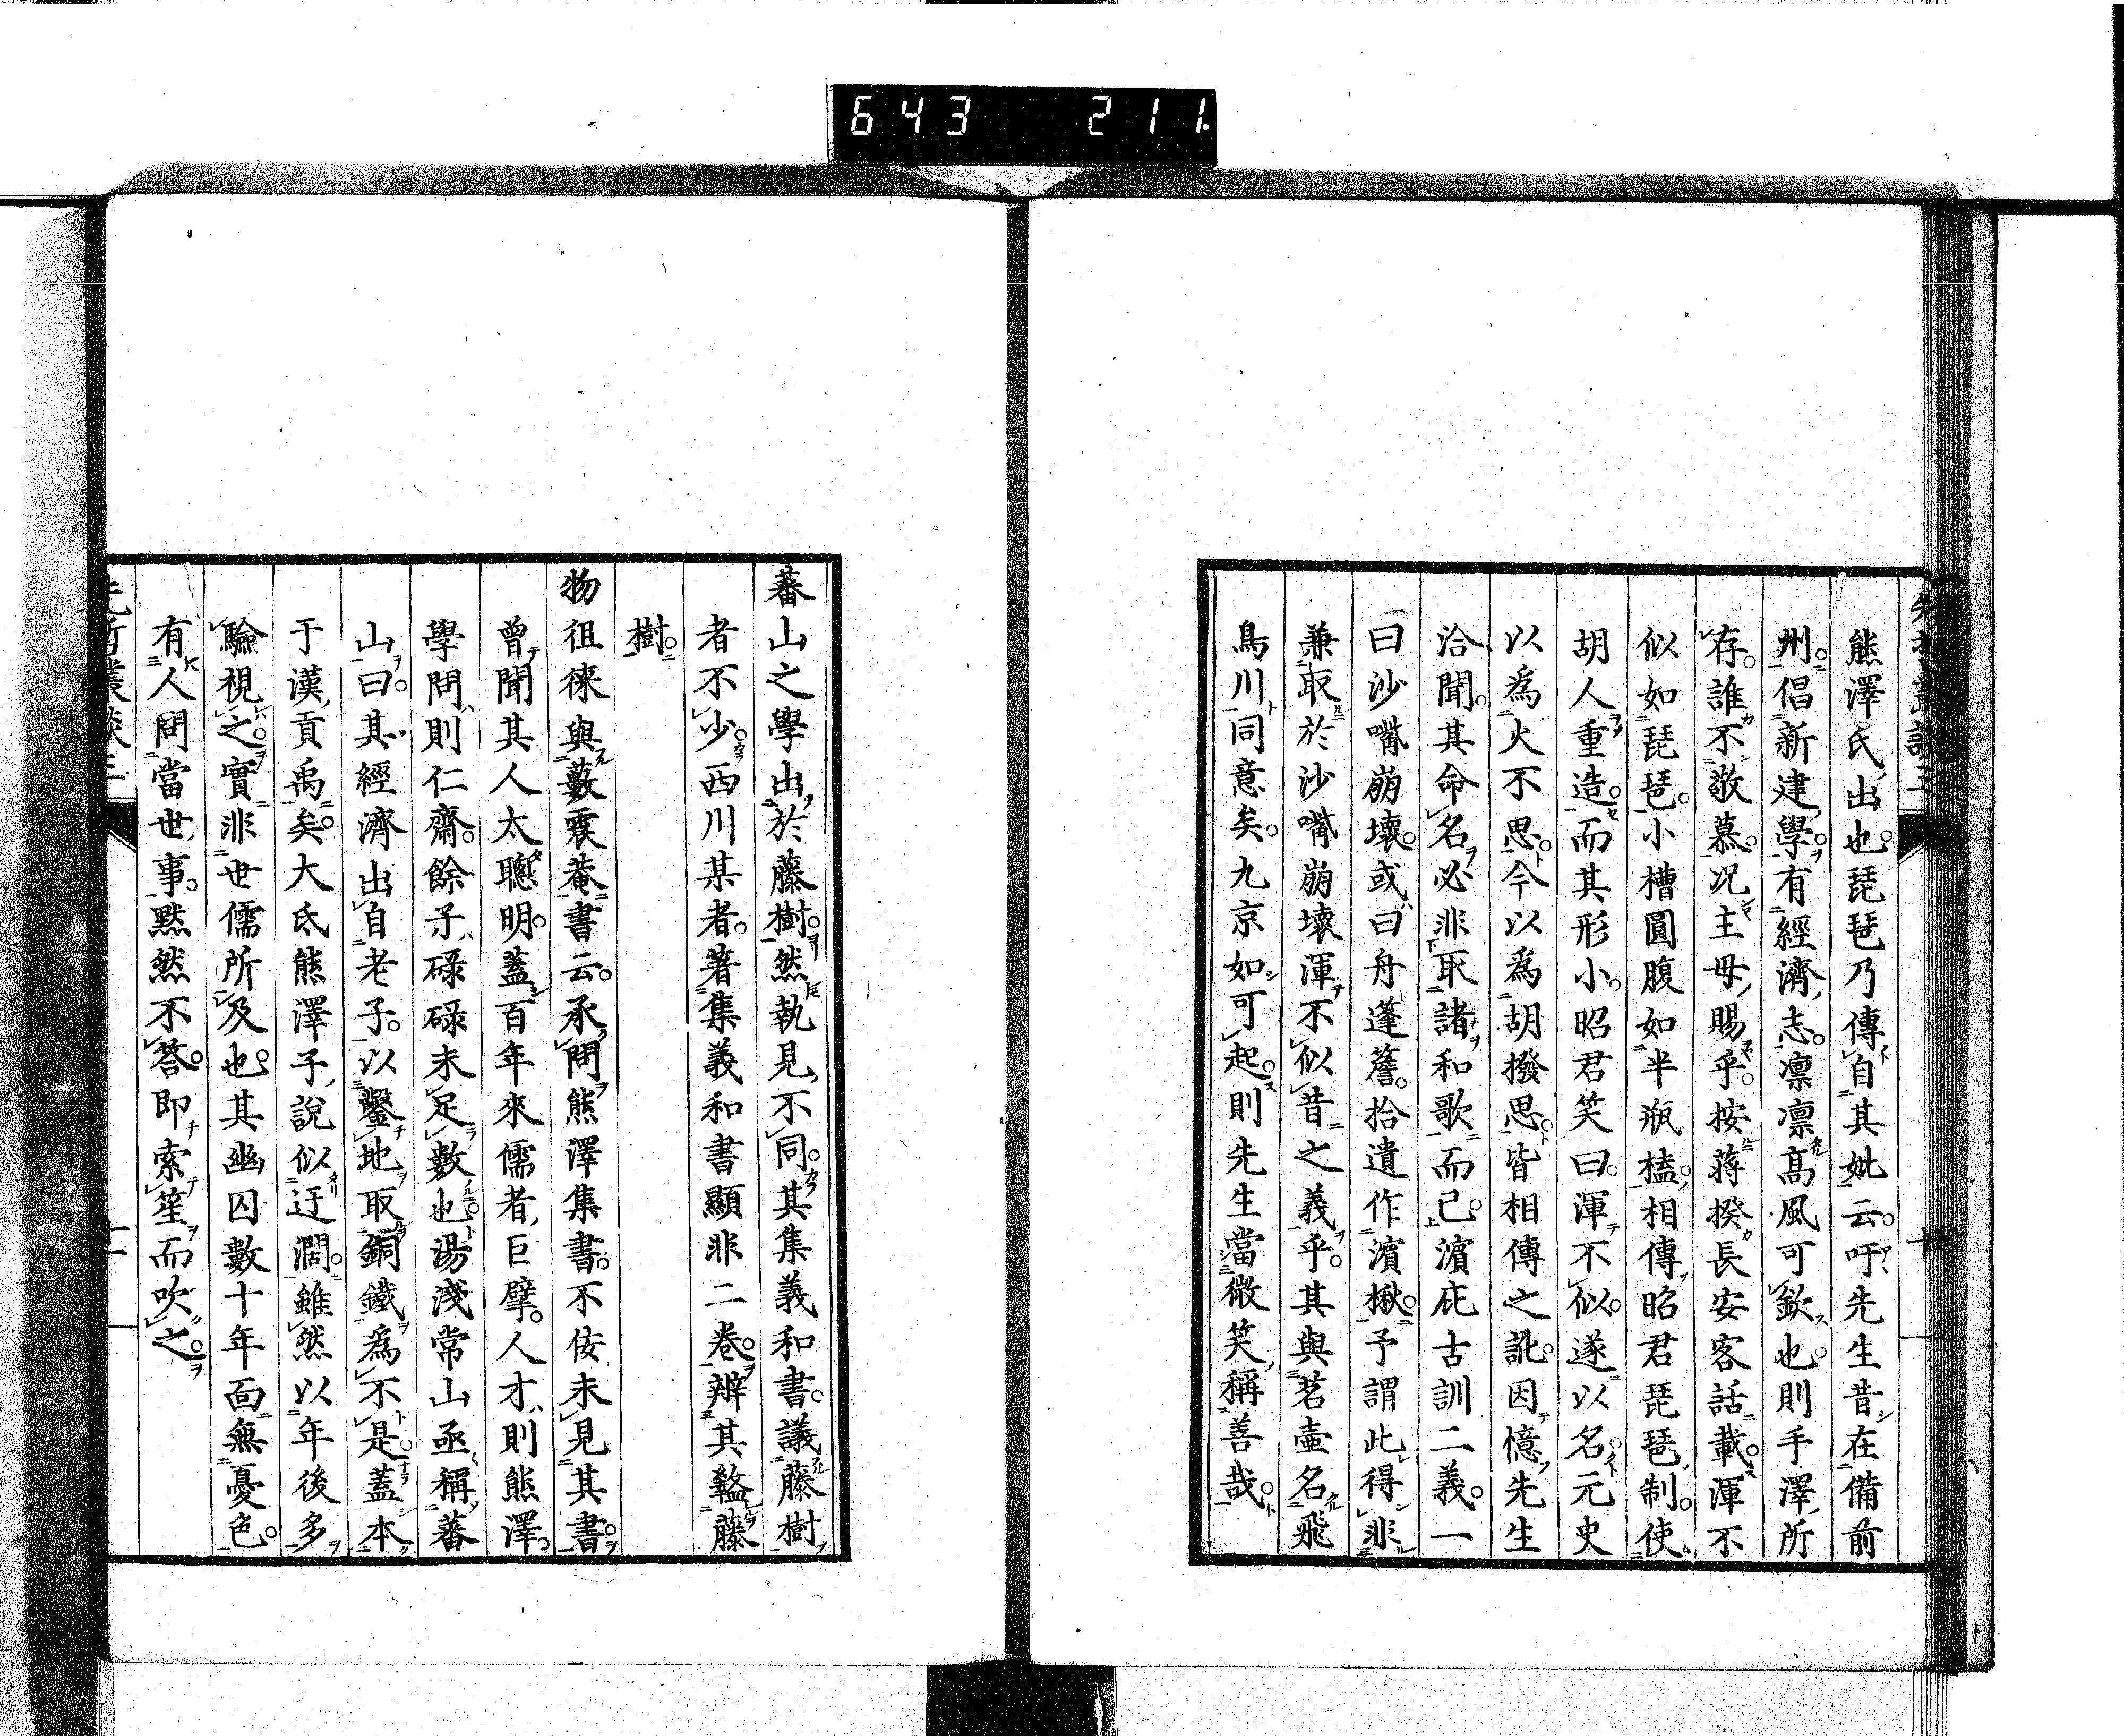 643 211
熊澤氏出也琵琶乃傳自其妣云吁先生昔在備前
州倡新建學有經濟志凛凛高風可欽也則手澤所
存誰不敬慕况主母賜乎按蒋揆長安客話載渾不
似如琵琶小槽圓腹如半瓶榼相傳昭君琵琶制使
胡人重造而其形小昭君笑曰渾不似遂以名元史
以爲火不思今以爲胡撥思皆相傳之訛因憶先生
洽聞其命名必非取諸和歌而已濵庇古訓二義一
曰沙嘴崩壞或曰舟蓬簷拾遺作濵楸予謂此得非
兼取於沙嘴崩壞渾不似昔之義乎其與茗壷名飛
鳥川同意矣九京如可起則先生當微笑稱善哉
蕃山之學出於藤樹然執見不同其集義和書議藤樹
者不少西川某者著集義和書顯非二卷辨其盭藤
樹
物徂徠與藪震菴書云承問熊澤集書不佞未見其書
曾聞其人太聰明蓋百年來儒者巨擘人才則熊澤
學問則仁齋餘子碌碌未足數也湯淺常山亟稱蕃
山曰其經濟出自老子以鑿地取銅鐵爲不是蓋本
于漢貢禹矣大氐熊澤子說似迂濶雖然以年後多
驗視之實非世儒所及也其幽囚數十年面無憂色
有人問當世事默然不答即索笙而吹之